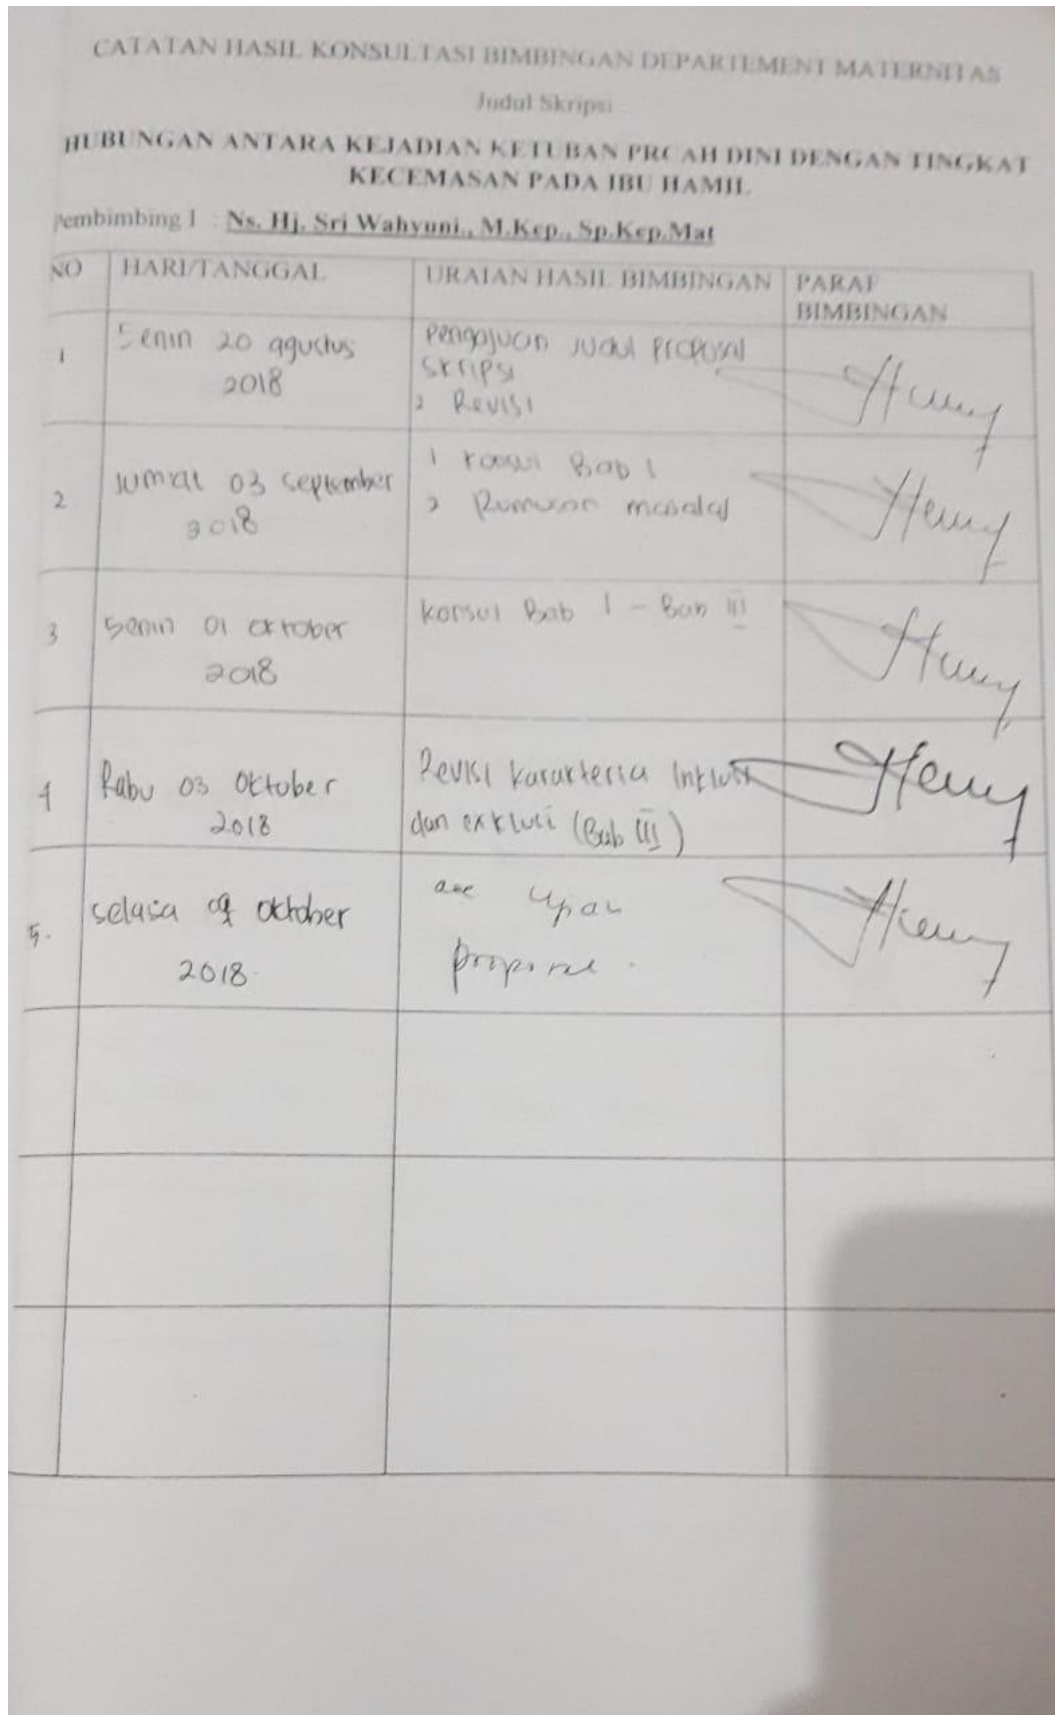 CATATAN HASIL KONSULTASI BIMBINGAN DEPARTEMENT MATERNITAS
Judul Skripsi
HUBUNGAN ANTARA KEJADIAN KETUBAN PRCAH DINI DENGAN TINGKAT
KECEMASAN PADA IBU HAMIL
Pembimbing I : Ns. Hj. Sri Wahyuni., M.Kep., Sp.Kep.Mat
NO HARI/TANGGAL URAIAN HASIL BIMBINGAN PARAF
BIMBINGAN
1 Senin 20 agustus Pengajuan Judul Proposal
2018 Skripsi
2 Revisi
2 Jum'at 03 september 1 konsul Bab 1
2018 2 Rumusan masalah
3 Senin 01 oktober Konsul Bab 1 - Bab III
2018
4 Rabu 03 Oktober Revisi karakteria Inklusi
2018 dan exklusi (Bab III)
5. selasa 09 oktober acc ujian
2018 proposal.